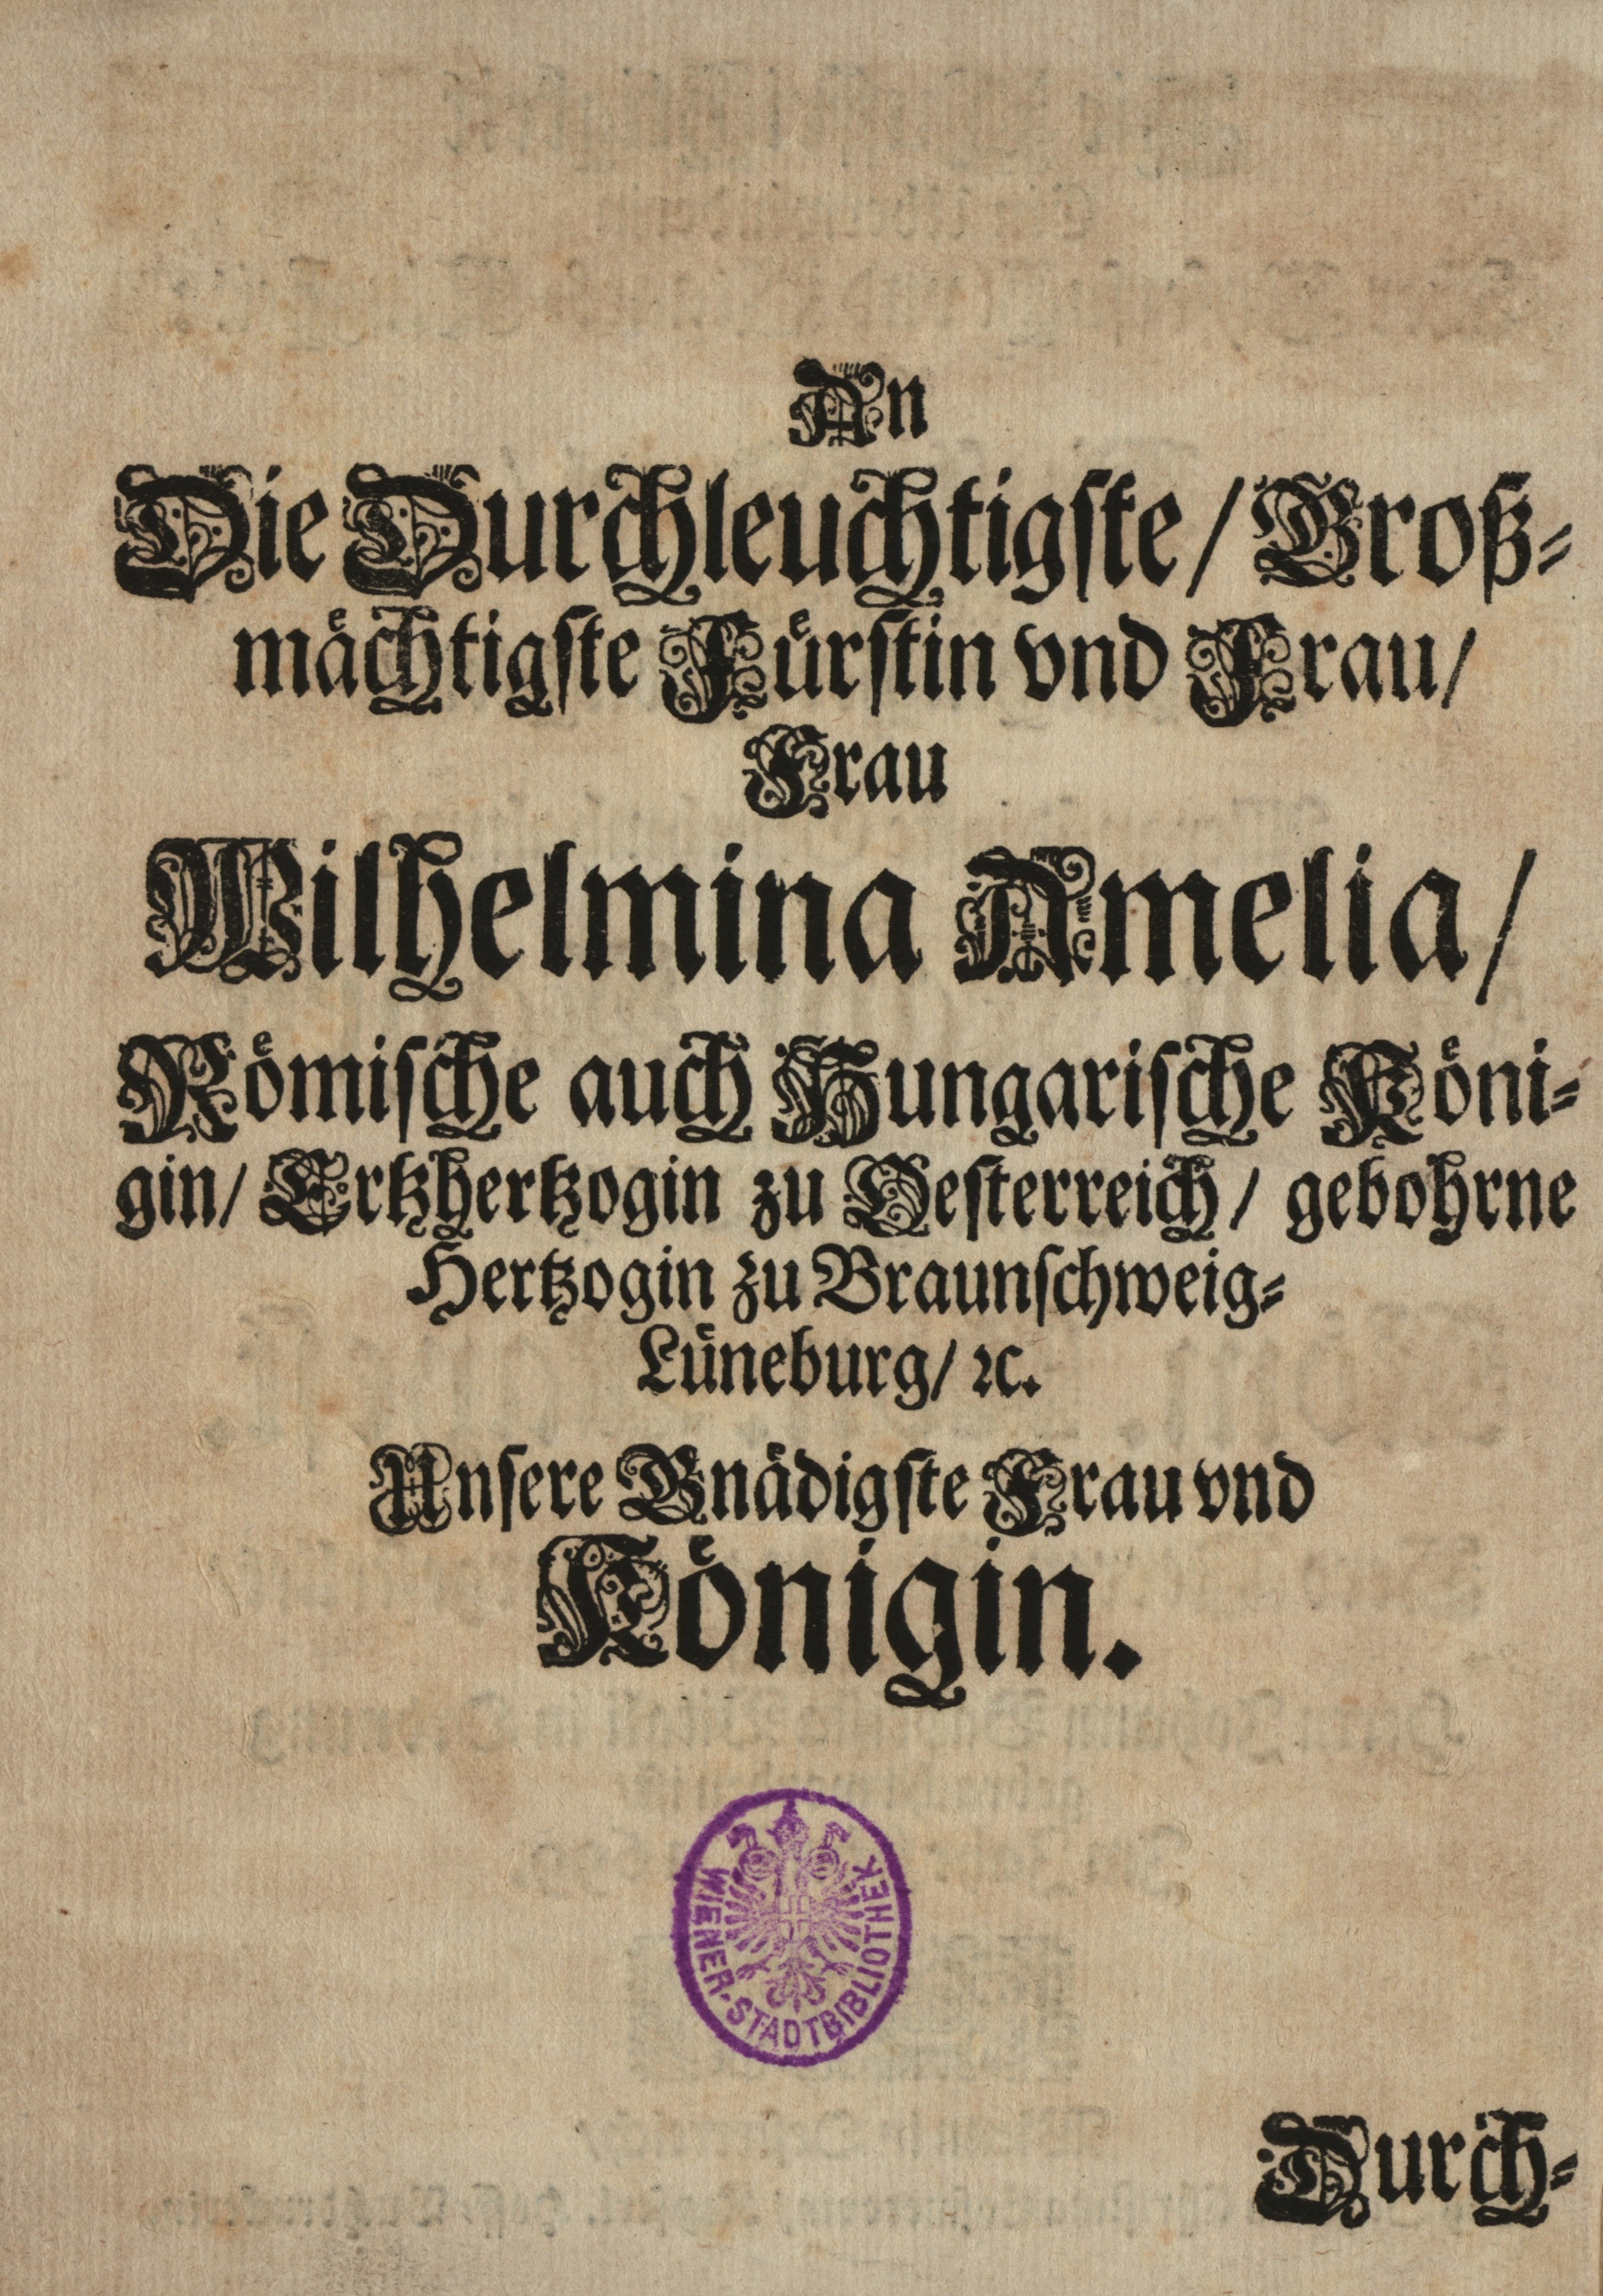 An
Die Durchleuchtigste/ Groß-
maͤchtigste Fuͤrstin vnd Frau/
Frau
Wilhelmina Amelia/
Roͤmische auch Hungarische Koͤni-
gin/ Ertzhertzogin zu Oesterreich/ gebohrne
Hertzogin zu Braunschweig-
Luͤneburg/ ꝛc.
Unsere Gnaͤdigste Frau vnd
Koͤnigin.
WIENER-STADTBIBLIOTHEK
Durch-